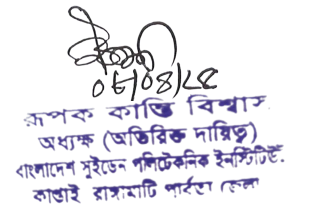 ০৮/০৪/২৫
রূপক কান্তি বিশ্বাস
অধ্যক্ষ (অতিরিক্ত দায়িত্ব)
বাংলাদেশ সুইডেন পলিটেকনিক ইনস্টিটিউট.
কাপ্তাই রাঙ্গামাটি পার্বত্য জেলা